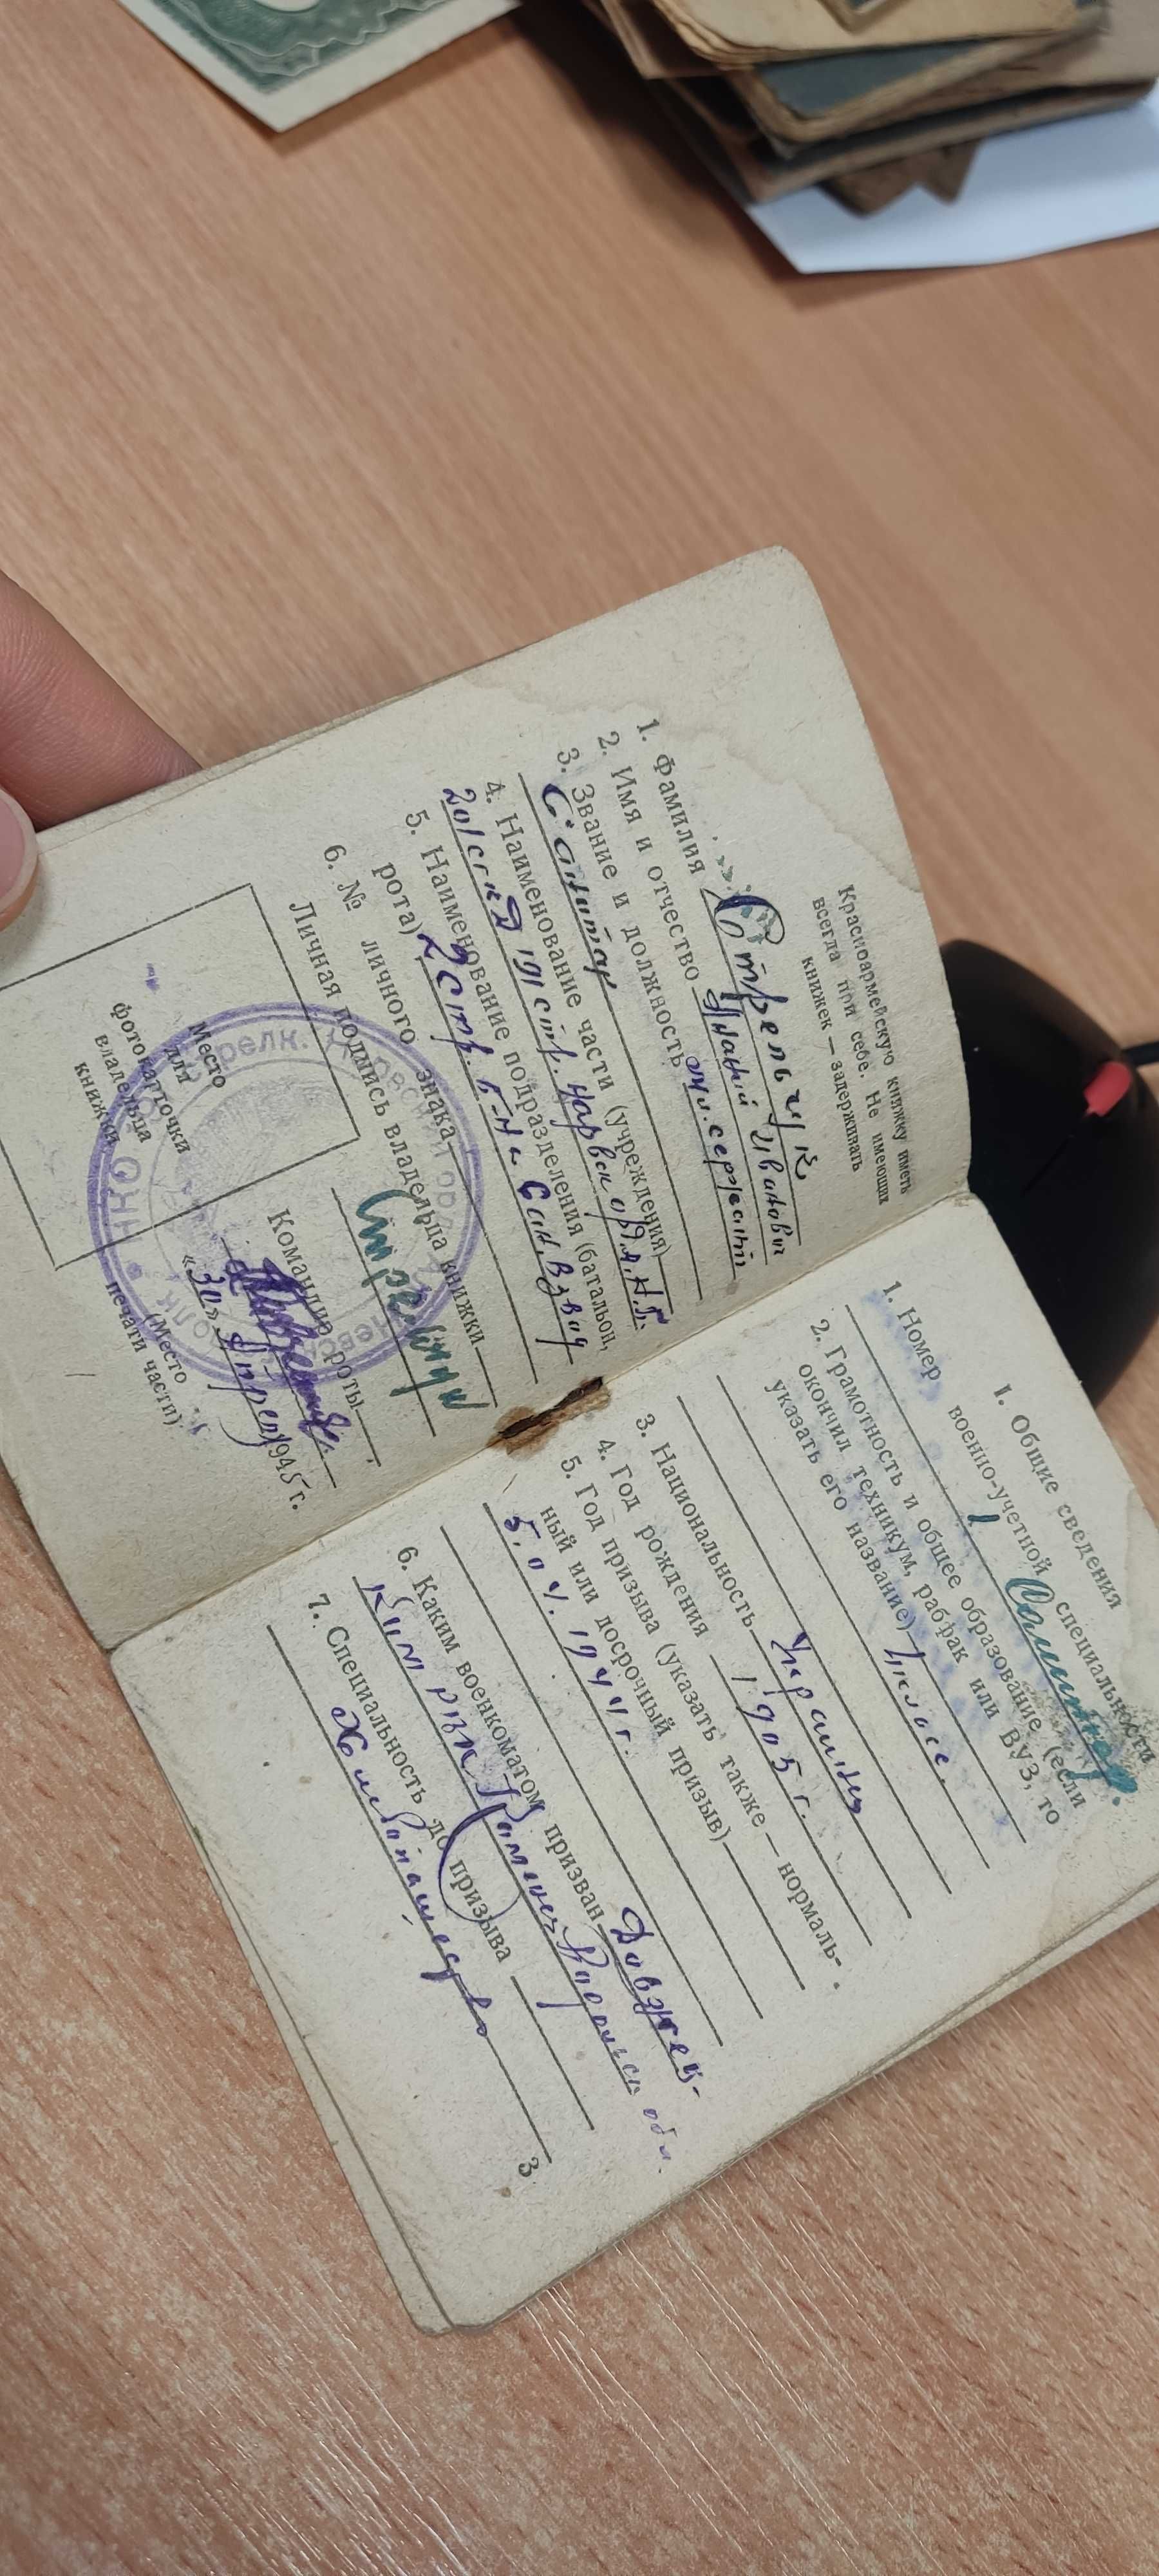 Красноармейскую книжку иметь
всегда при себе. Не имеющих
книжек — задерживать
1. Фамилия Стрельчук
2. Имя и отчество Игнатий Иванович
3. Звание и должность мл. сержант
Санитар
4. Наименование части (учреждения)
191 стр. Нарвск
5. Наименование подразделения (батальон,
рота) 2 стр. б-на Сан. взвод
6. № личного знака
Личная подпись владельца книжки
Место
для
фотокарточки
владельца
книжки
Командир роты
«30» Апрел 1945 г.
(Место
печати части)
1. Общие сведения
1. Номер военно-учетной специальности
1 Санитар
2. Грамотность и общее образование (если
окончил техникум, рабфак или ВУЗ, то
указать его название)
3. Национальность Украинец
4. Год рождения 1905 г.
5. Год призыва (указать также — нормаль-
ный или досрочный призыв)
5.04.1944 г.
6. Каким военкоматом призван
РВК Каменец Подольск обл.
7. Специальность до призыва
3